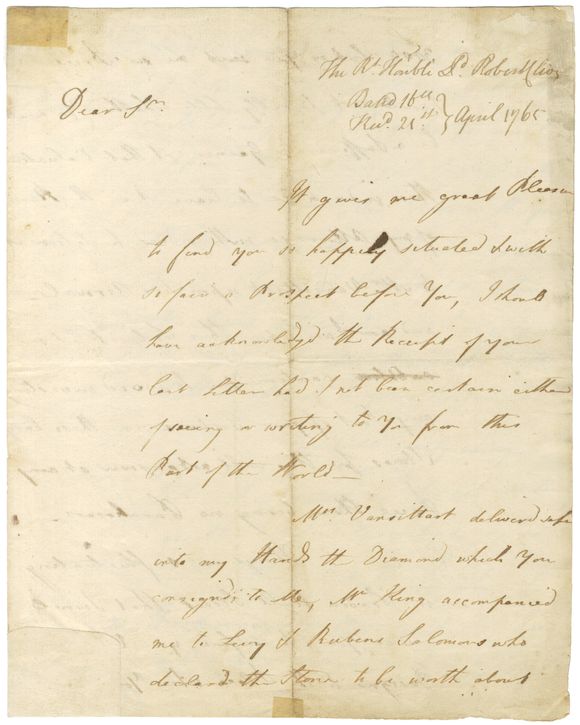 The Rt. Honble Ld. Robert Clive
Dear Sr.
Dated 16th
Recd. 21st } April 1765
It gives me great Pleasure
to find you so happily situated & with
so fair a Prospect before You, I should
have acknowledg'd the Receipt of your
last Letter had I not been certain either
of seeing or writing to You from this
Part of the World—
Mrs Vansittart deliverd safe
into my Hands the Diamond which You
consignd to Me, Mr King accompanied
me to Levy & Rubens Salomons who
declard the Stone to be worth about